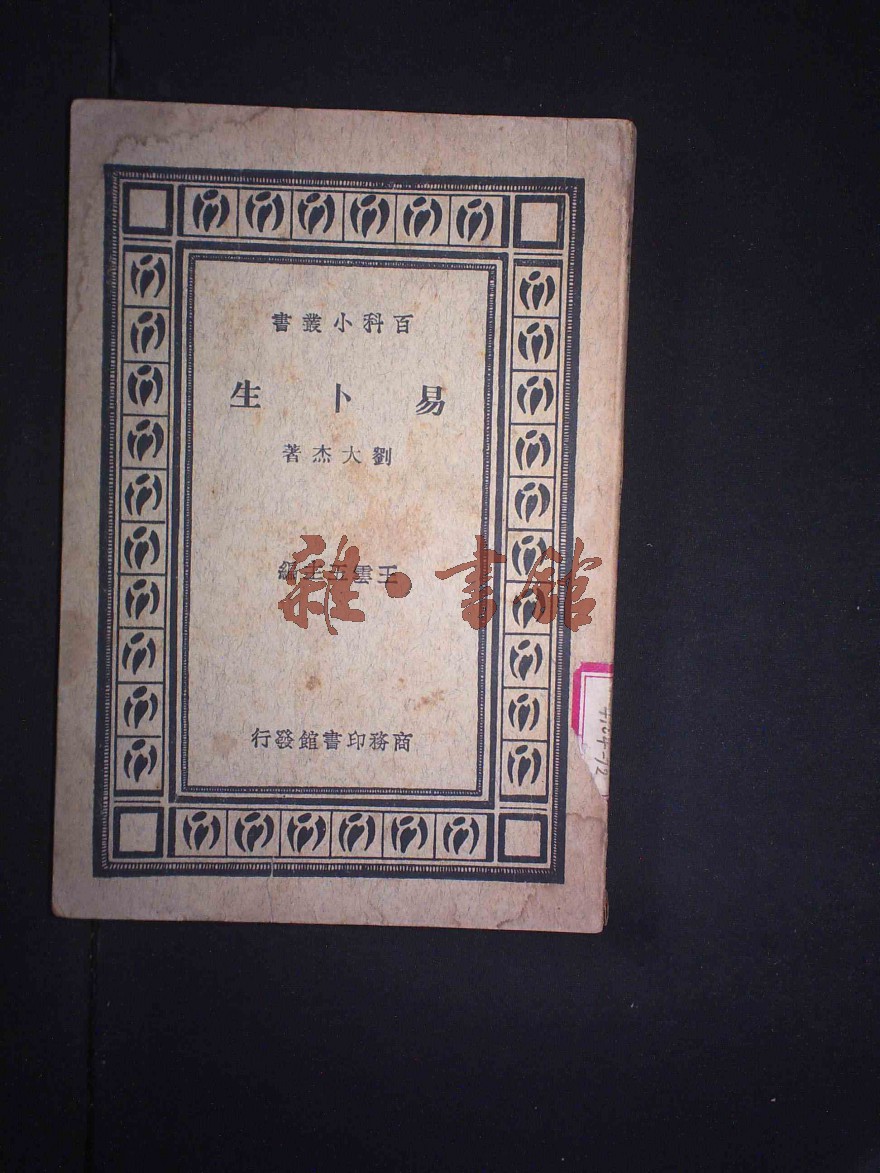 百科小叢書
易卜生
劉大杰著
王雲五主編
雜·書館
商務印書館發行